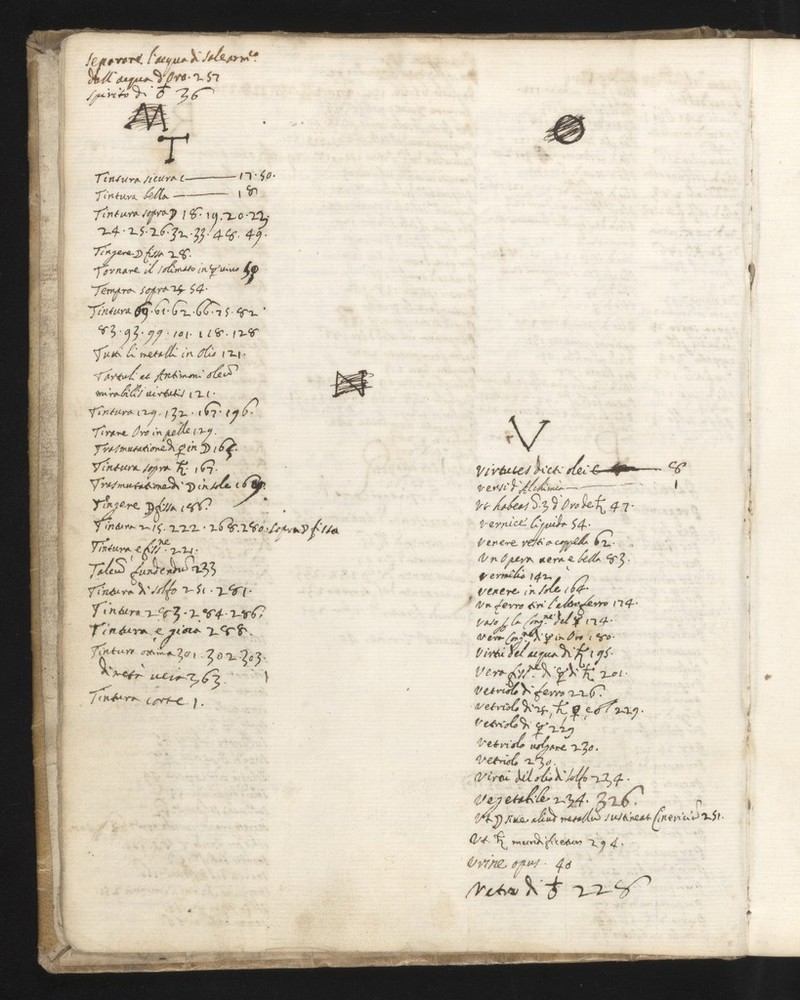 Separare l'acqua di sale arm.co
dall'acqua d'Oro. 257
spirito di ♁ 36
T
Tintura sicura 17. 50.
Tintura bella 18
Tintura sopra ☽ 18. 19. 20. 22.
24. 25. 26. 32. 33. 48. 49.
Tingere ☽ fissa 28.
Tornare il solimato in ☿ vivo 50
Tempra sopra 54.
Tintura 60. 61. 62. 66. 75. 82.
83. 93. 99. 101. 118. 128
Tutti li metalli in Olio 121.
Tartari et Antimoni oleū
mirabilis virtutis 121.
Tintura 129. 132. 167. 196.
Tirare Oro in pelle 129.
Trasmutatione di ☿ in ☽
Tintura sopra ♄ 167.
Trasmutatione di ☽ in sole
Tingere ☽ fissa 188.
Tintura 215. 222. 268. 280. sopra ☽ fissa
Tintura, e fiss.ne 221.
Talcū fundendū 233
Tintura di solfo 251. 281.
Tintura 283. 284. 286.
Tintura, e gioia 288.
Tintura ottima 301. 302. 303.
363.
Tintura 1.
V
Virtutes dicti olei 8
versi d'Alchimia 1
Vt habeas ℥ 3 d'Oro de ♄ 47.
vernice liquida 54.
Venere resti a coppella 62.
Vn Opera vera e bella 83.
Vermilio 142
venere in sole 164
Vn ferro tiri l'altro ferro 174.
vaso p la Cong.ne del ☿ 174.
vera Cong.ne di ☿ in Oro 180.
Virtù del acqua di ♄ 195.
Vera fiss.ne di ☿ di ♄ 201.
Vetriolo di ferro 226.
Vetriolo di ♃, ♄ ♀, e ♂ 229.
Vetriolo di ☿ 229
Vetriolo volgare 230.
Vetriolo 230.
Virtù del olio di solfo 234.
Vegetabile 234. 326.
Vt ☽ sive aliud metallū sustineat Cinericiū 251.
Vt ♄ mundificetur 294.
Urine opus 40
Vetro di ♁ 228